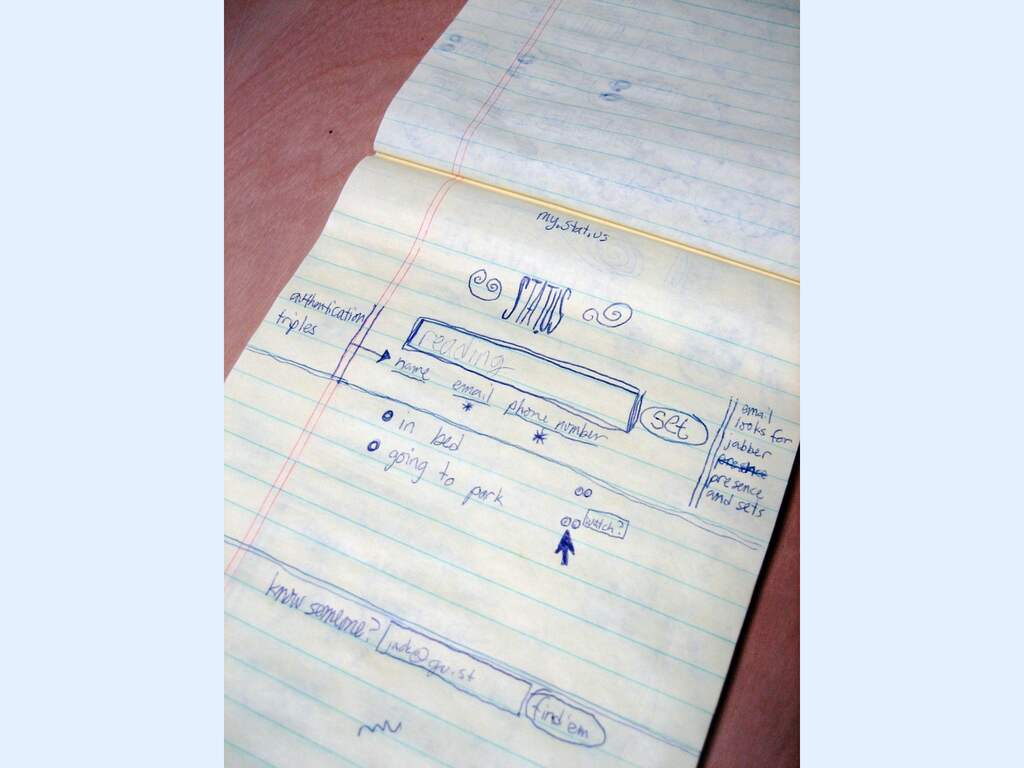 my.stat.us
STAT.US
authentication
triples
reading
name email phone number
* *
set
email
looks for
jabber
presence
presence
and sets
in bed
going to park
watch?
know someone?
find'em